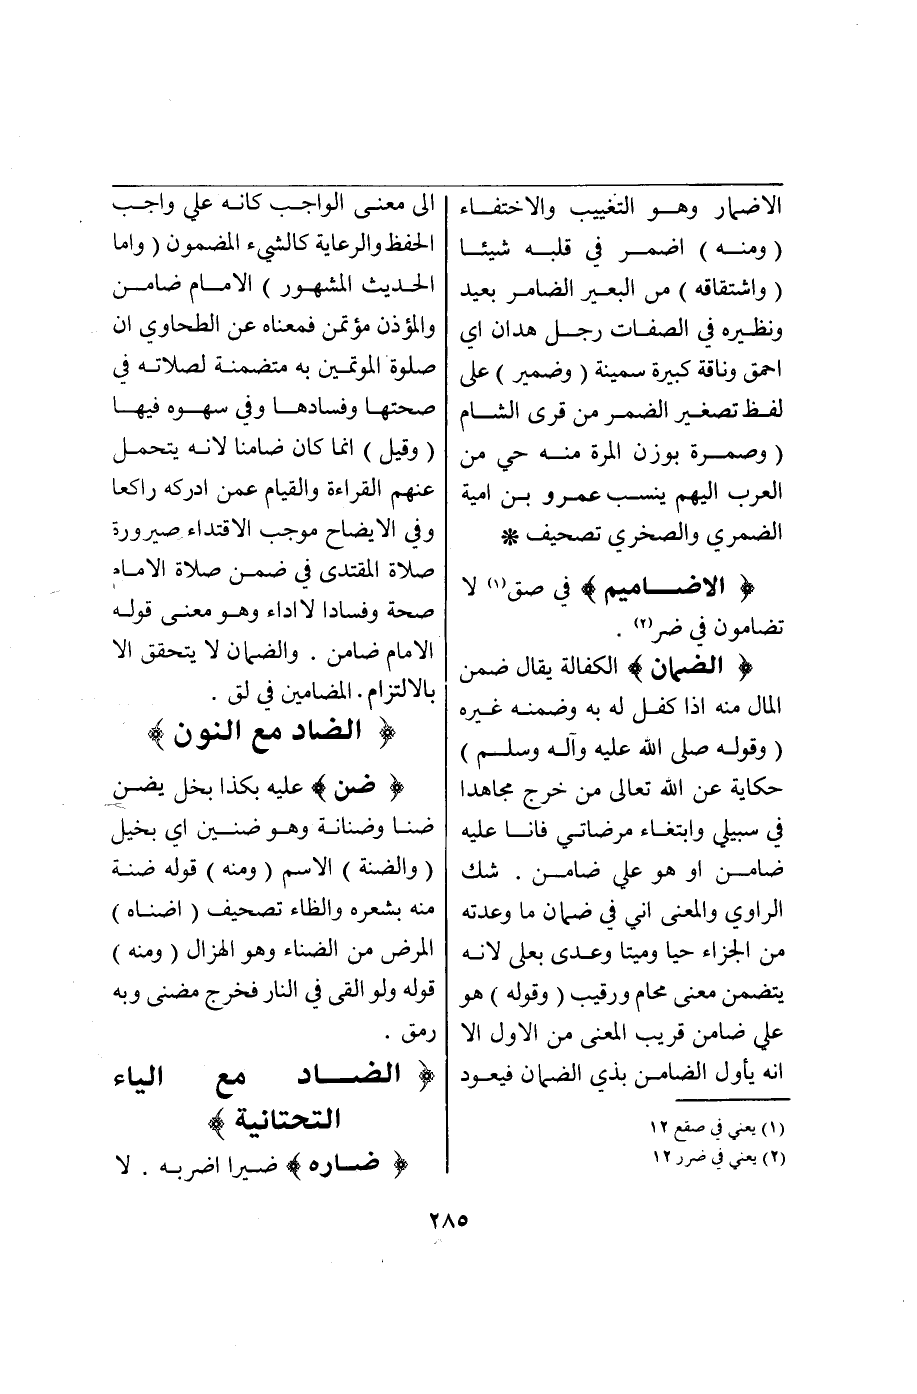 الاضمار وهو التغييب والاختفاء
( ومنه ) اضمر في قلبه شيئا
( واشتقاقه ) من البعير الضامر بعيد
ونظيره في الصفات رجل هدان اي
احمق وناقة كبيرة سمينة ( وضمير ) على
لفظ تصغير الضمر من قرى الشام
( وضمرة بوزن المرة منه حي من
العرب اليهم ينسب عمرو بن امية
الضمري والصخري تصحيف *
﴿ الاضاميم ﴾ في صق(١) لا
تضامون في ضر(٢) .
﴿ الضمان ﴾ الكفالة يقال ضمن
المال منه اذا كفل له به وضمنه غيره
( وقوله صلى الله عليه وآله وسلم )
حكاية عن الله تعالى من خرج مجاهدا
في سبيلي وابتغاء مرضاتي فانا عليه
ضامن او هو علي ضامن . شك
الراوي والمعنى اني في ضمان ما وعدته
من الجزاء حيا وميتا وعدى بعلى لانه
يتضمن معنى محام ورقيب ( وقوله ) هو
علي ضامن قريب المعنى من الاول الا
انه يأول الضامن بذي الضمان فيعود
(١) يعني في صفع ١٢
(٢) يعني في ضرر ١٢
الى معنى الواجب كانه علي واجب
الحفظ والرعاية كالشيء المضمون ( واما
الحديث المشهور ) الامام ضامن
والمؤذن مؤتمن فمعناه عن الطحاوي ان
صلوة الموتمين به متضمنة لصلاته في
صحتها وفسادها وفي سهوه فيها
( وقيل ) انما كان ضامنا لانه يتحمل
عنهم القراءة والقيام عمن ادركه راكعا
وفي الايضاح موجب الاقتداء صيرورة
صلاة المقتدى في ضمن صلاة الامام
صحة وفسادا لا اداء وهو معنى قوله
الامام ضامن . والضمان لا يتحقق الا
بالالتزام . المضامين في لق .
﴿ الضاد مع النون ﴾
﴿ ضن ﴾ عليه بكذا بخل يضن
ضنا وضنانة وهو ضنين اي بخيل
( والضنة ) الاسم ( ومنه ) قوله ضنة
منه بشعره والظاء تصحيف ( اضناه )
المرض من الضناء وهو الهزال ( ومنه )
قوله ولو القى في النار فخرج مضنى وبه
رمق .
﴿ الضاد مع الياء
التحتانية ﴾
﴿ ضاره ﴾ ضيرا اضر به . لا
٢٨٥